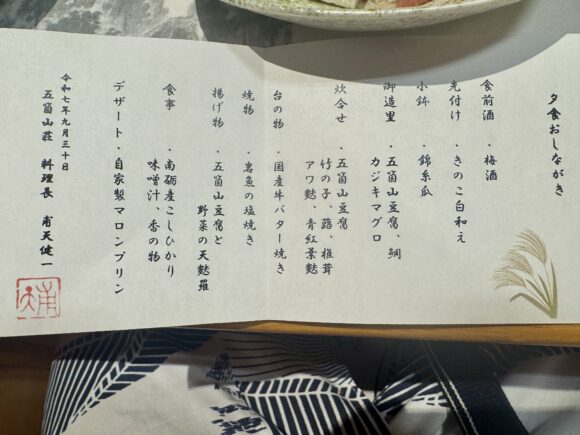 夕食おしながき
食前酒 ・梅酒
先付け ・きのこ白和え
小鉢 ・錦糸瓜
御造里 ・五箇山豆腐、鯛
カジキマグロ
炊合せ ・五箇山豆腐
竹の子、蕗、椎茸
アワ麩、青紅葉麩
台の物 ・国産牛バター焼き
焼物 ・岩魚の塩焼き
揚げ物 ・五箇山豆腐と
野菜の天麩羅
食事 ・南砺産こしひかり
味噌汁、香の物
デザート・自家製マロンプリン
令和七年九月三十日
五箇山荘 料理長 甫天健一